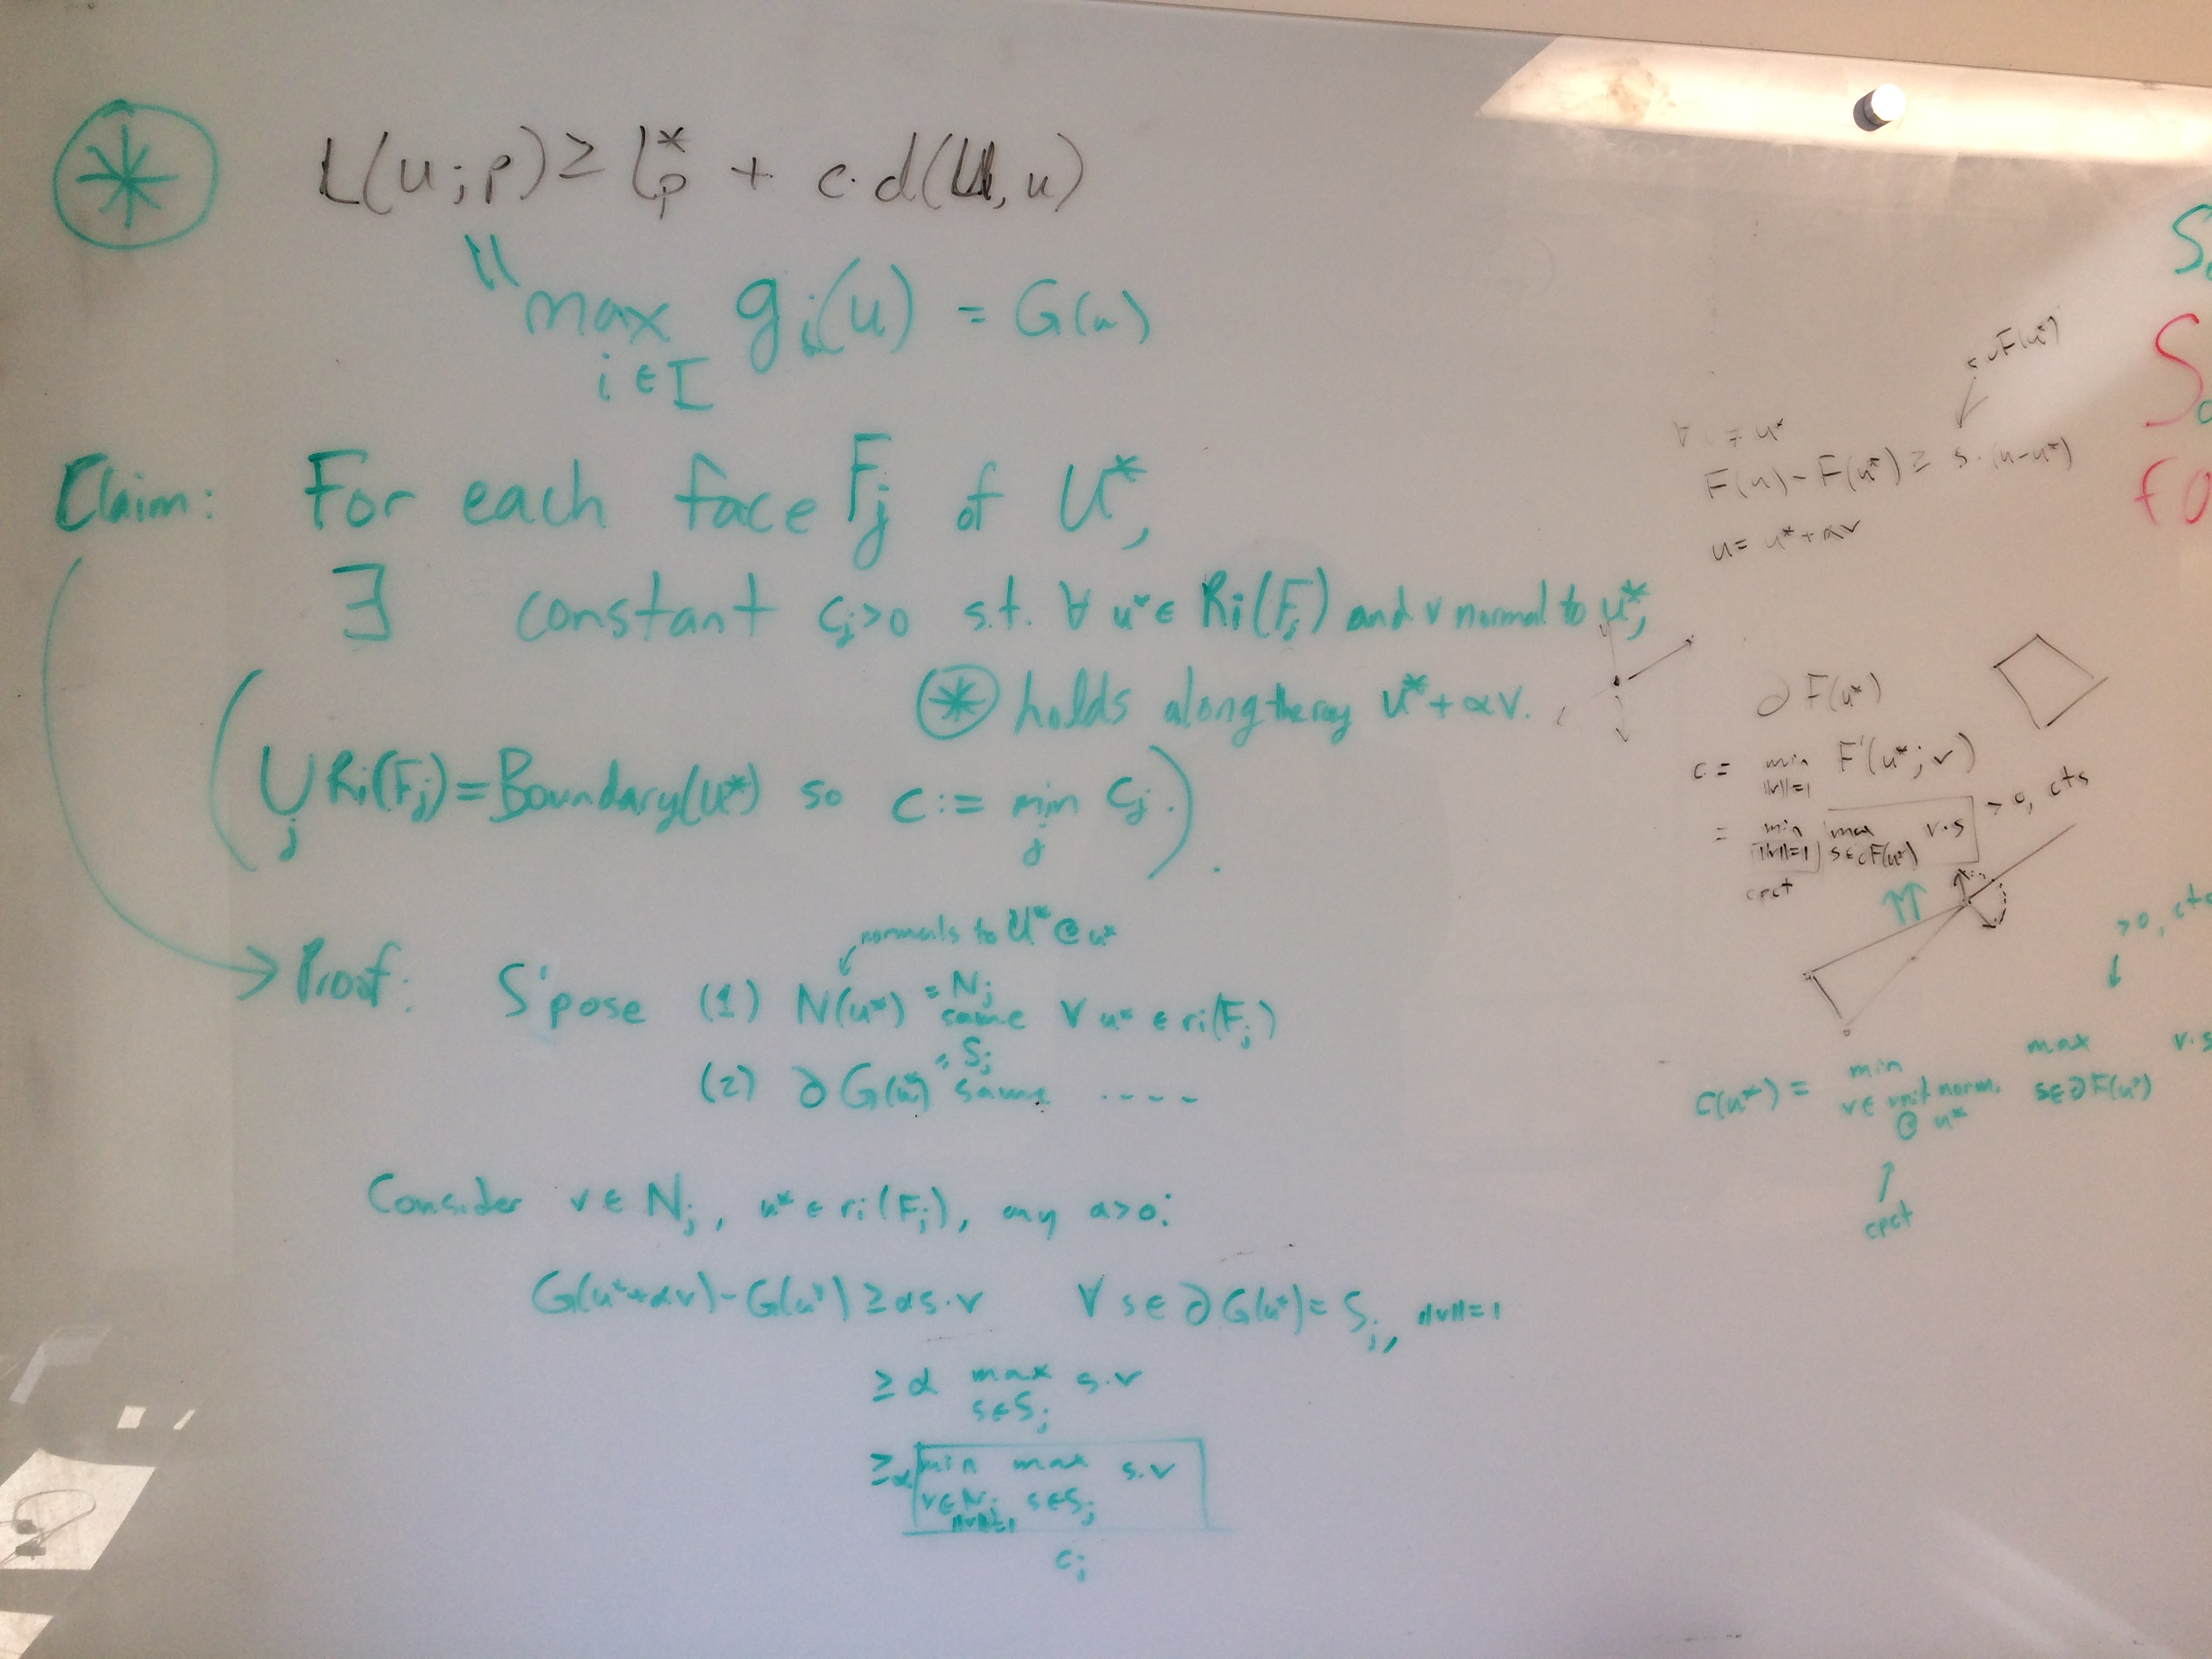 * L(u;p) ≥ L*_p + c·d(U, u)
" max_{i∈I} g_i(u) = G(u)
Claim: For each face F_j of U*,
∃ constant c_j>0 s.t. ∀ u*∈ Ri(F_j) and v normal to U*,
* holds along the ray u*+αv.
( ⋃_j Ri(F_j) = Boundary(U*) so c := min_j c_j. ).
→ Proof: S'pose (1) N(u*) = N_j same ∀ u* ∈ ri(F_j)
normals to U* @ u*
(2) ∂G(u*) = S_j same ----
Consider v ∈ N_j, u* ∈ ri(F_j), any α>0:
G(u*+αv) - G(u*) ≥ αs·v ∀ s ∈ ∂G(u*) = S_j, ||v||=1
≥ α max_{s∈S_j} s·v
≥ α min_{v∈N_j ||v||=1} max_{s∈S_j} s·v
c_j
F(u*)
≠ u*
F(u) - F(u*) ≥ s·(u-u*)
u = u*+αv
∂F(u*)
c = min_{||v||=1} F'(u*; v)
= min_{||v||=1} max_{s∈∂F(u*)} v·s >0, cts
cpct
>0, cts
↓
c(u*) = min_{v∈ unit norm. @ u*} max_{s∈∂F(u*)} v·s
↑
cpct
S
S
fo